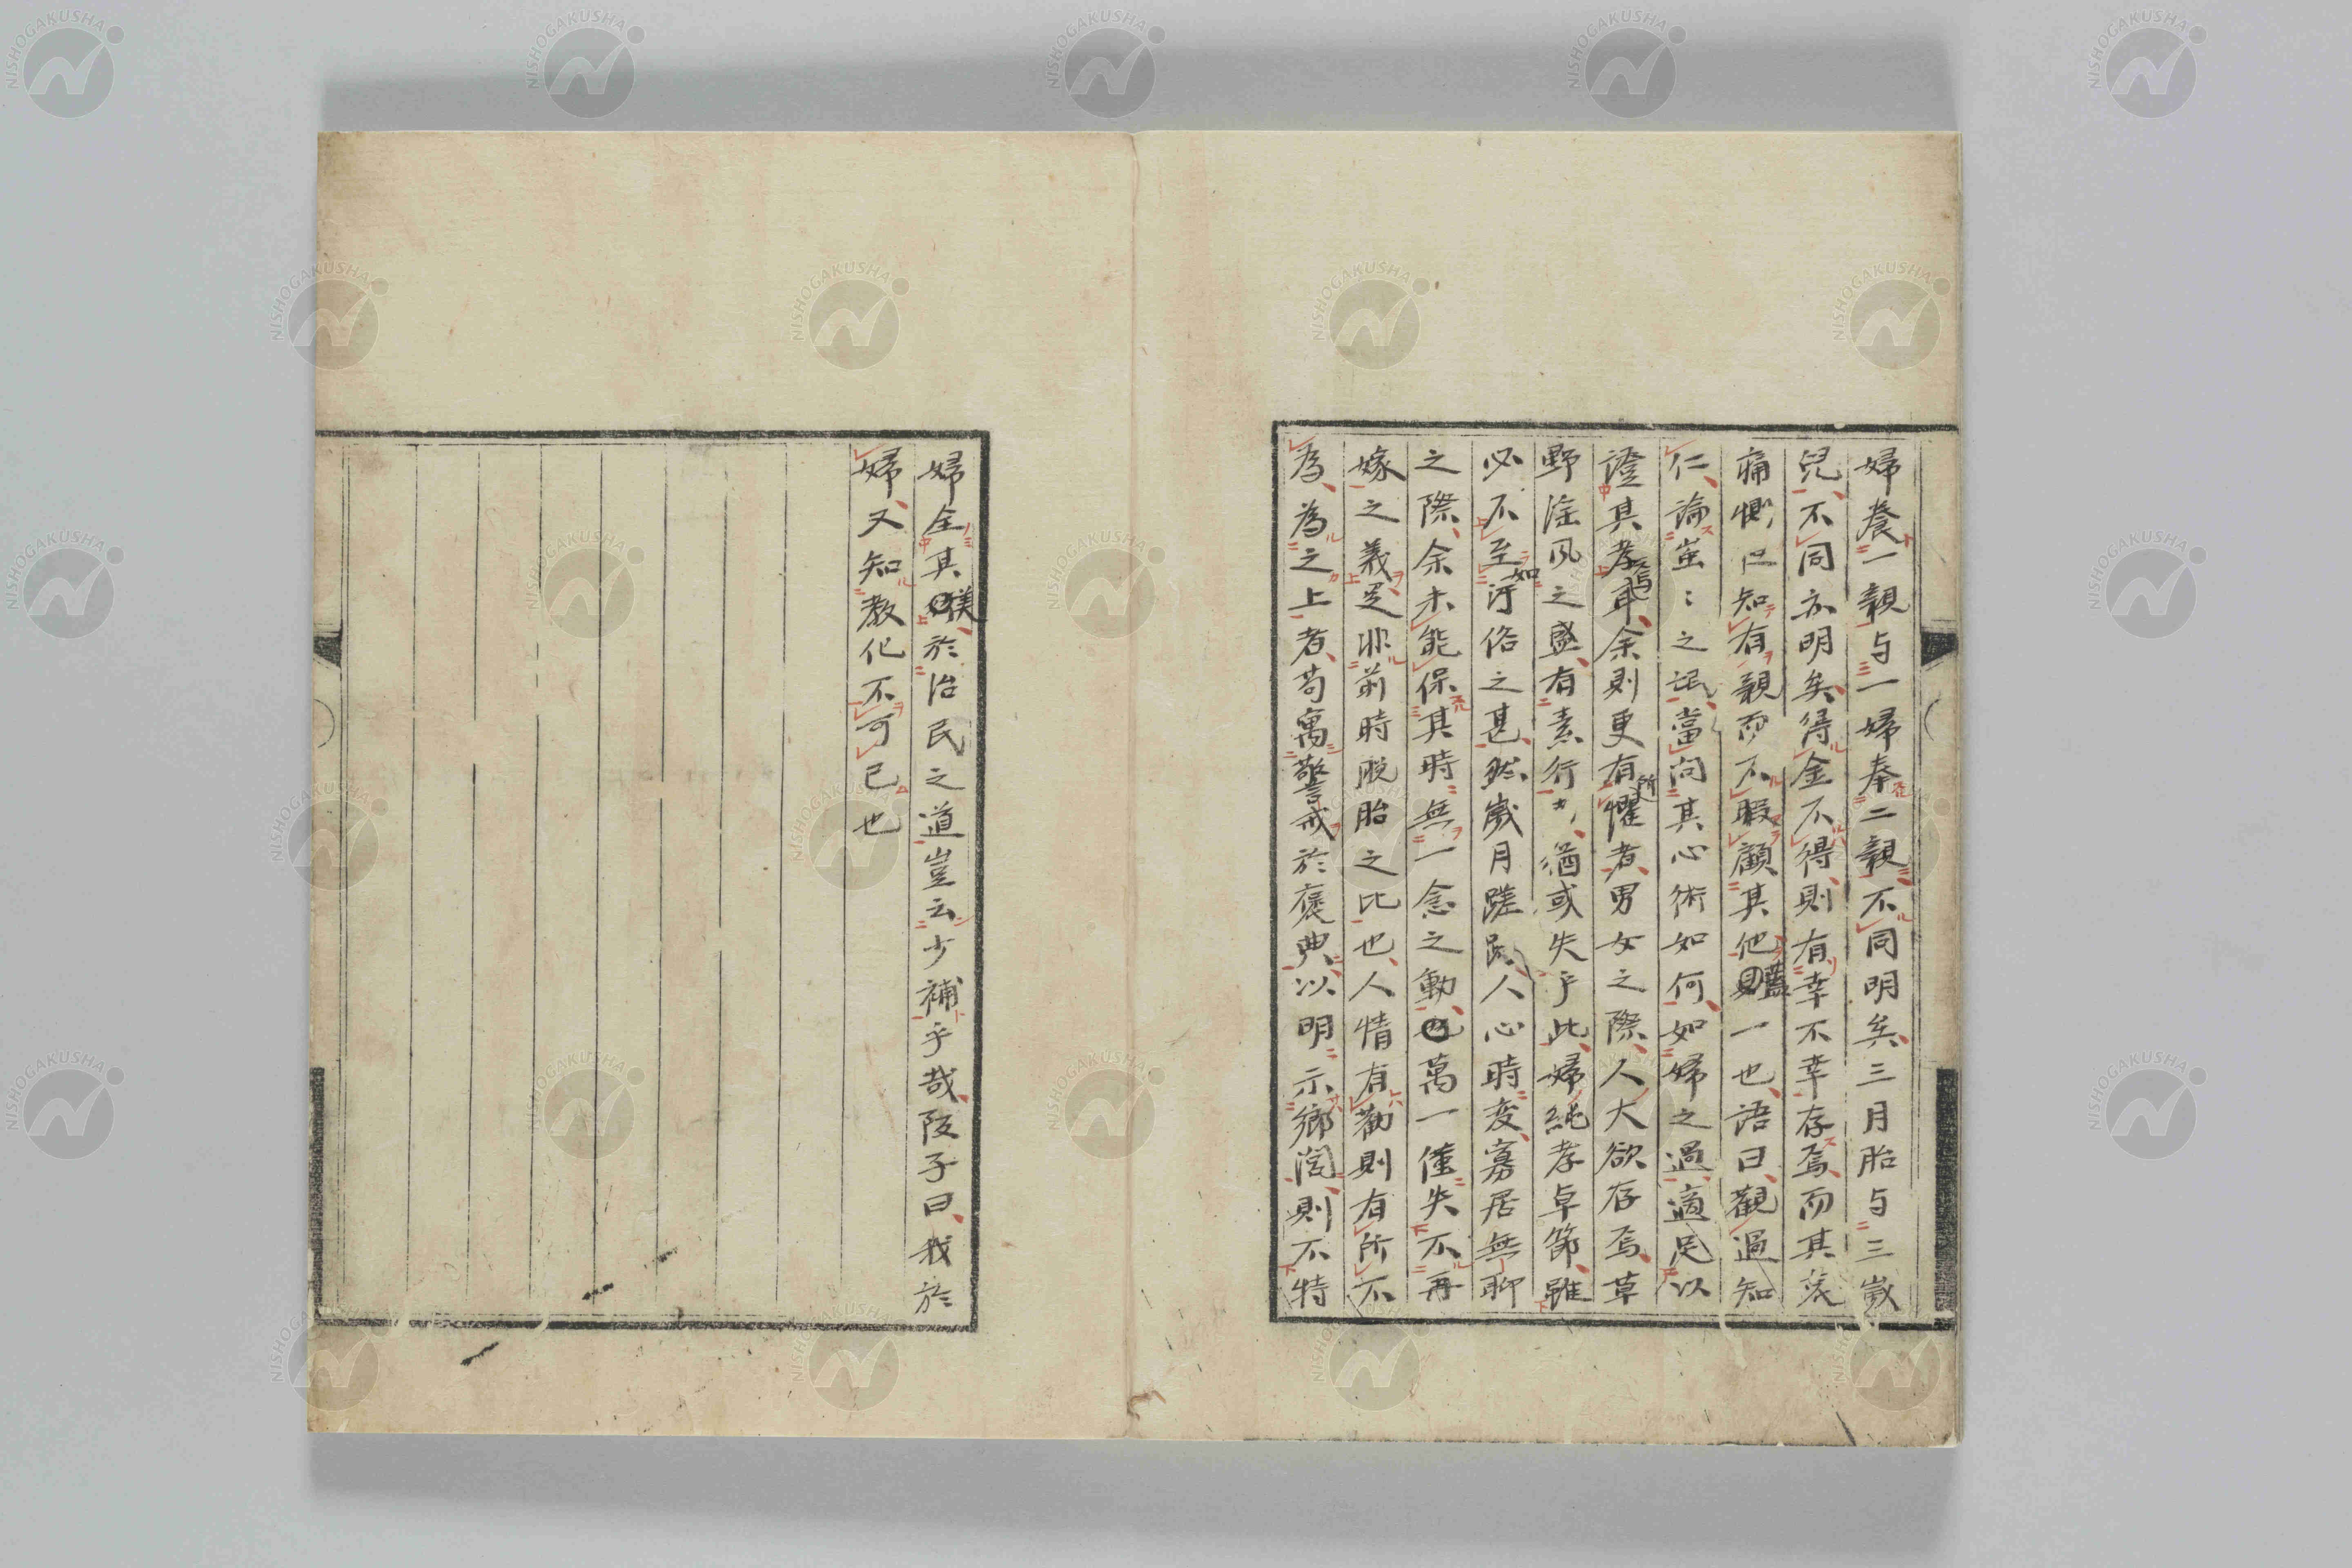 婦養一親与一婦奉二親不同明矣三月胎与三歳
兒不同亦明矣得金不得則有幸不幸存焉而其哀
痛惻但知有親而不暇顧其他蓋一也語曰觀過知
仁論蚩々之氓當問其心術如何如婦之過適足以
證其孝焉耳余則更有所懼者男女之際人大欲存焉草
野淫風之盛有素行者猶或失乎此婦純孝卓節雖
必不至如汙俗之甚然歳月蹉跎人心時変寡居無聊
之際余未能保其時無一念之動也萬一僅失不再
嫁之義是非前時脱胎之比也人情有勸則有所不
為為之上者苟寓警戒於褒典以明示鄉閭則不特
婦全其美於治民之道豈云少補乎哉阪子曰我於
婦又知教化不可已也
NISHOGAKUSHA